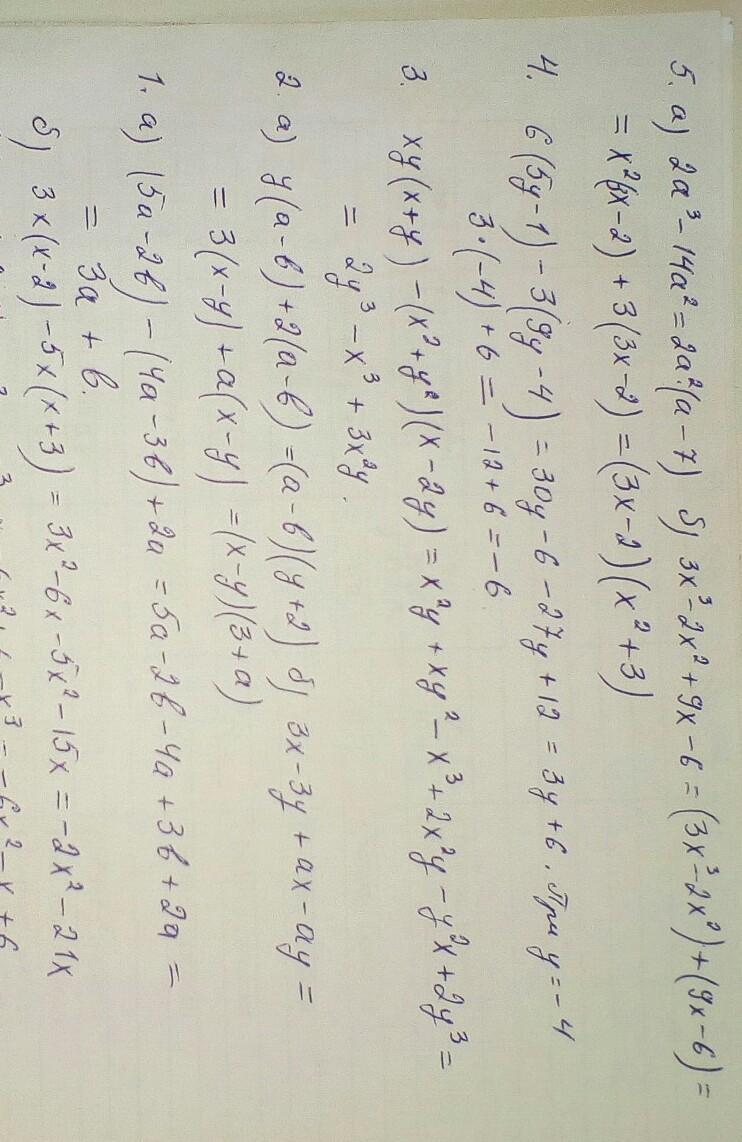 5. а) 2a³ - 14a² = 2a²(a - 7) б) 3x³ - 2x² + 9x - 6 = (3x³ - 2x²) + (9x - 6) =
= x²(3x - 2) + 3(3x - 2) = (3x - 2)(x² + 3)
4. 6(5y - 1) - 3(9y - 4) = 30y - 6 - 27y + 12 = 3y + 6. При y = -4
3·(-4) + 6 = -12 + 6 = -6
3. xy(x + y) - (x² + y²)(x - 2y) = x²y + xy² - x³ + 2x²y - y²x + 2y³ =
= 2y³ - x³ + 3x²y.
2. а) y(a - b) + 2(a - b) = (a - b)(y + 2) б) 3x - 3y + ax - ay =
= 3(x - y) + a(x - y) = (x - y)(3 + a)
1. а) (5a - 2b) - (4a - 3b) + 2a = 5a - 2b - 4a + 3b + 2a =
= 3a + b.
б) 3x(x - 2) - 5x(x + 3) = 3x² - 6x - 5x² - 15x = -2x² - 21x
= -6x² - x + 6